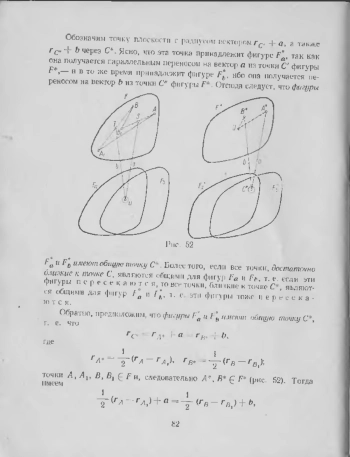 Обозначим точку плоскости с радиусом-вектором r_{C'} + a, а также
r_{C''} + b через C*. Ясно, что эта точка принадлежит фигуре F*_a, так как
она получается параллельным переносом на вектор a из точки C' фигуры
F*,— и в то же время принадлежит фигуре F*_b, ибо она получается пе-
реносом на вектор b из точки C'' фигуры F*. Отсюда следует, что фигуры
Рис. 52
F*_a и F*_b имеют общую точку C*. Более того, если все точки, достаточно
близкие к точке C, являются общими для фигур F_a и F_b, т. е. если эти
фигуры пересекаются, то все точки, близкие к точке C*, являют-
ся общими для фигур F*_a и F*_b, т. е. эти фигуры тоже пересека-
ются.
Обратно, предположим, что фигуры F*_a и F*_b имеют общую точку C*,
т. е. что
r_{C*} = r_{A*} + a = r_{B*} + b,
где
r_{A*} = 1/2 (r_A − r_{A_1}), r_{B*} = 1/2 (r_B − r_{B_1});
точки A, A_1, B, B_1 ∈ F и, следовательно A*, B* ∈ F* (рис. 52). Тогда
имеем
1/2 (r_A − r_{A_1}) + a = 1/2 (r_B − r_{B_1}) + b,
82